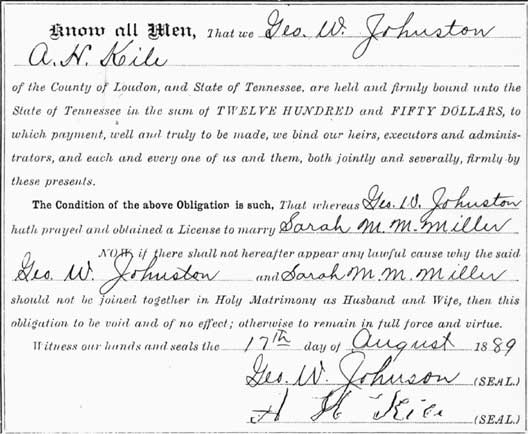 Know all Men, That we Geo. W. Johnston
A. H. Kile
of the County of Loudon, and State of Tennessee, are held and firmly bound unto the
State of Tennessee in the sum of TWELVE HUNDRED and FIFTY DOLLARS, to
which payment, well and truly to be made, we bind our heirs, executors and adminis-
trators, and each and every one of us and them, both jointly and severally, firmly by
these presents.
The Condition of the above Obligation is such, That whereas Geo. W. Johnston
hath prayed and obtained a License to marry Sarah M. M. Miller
NOW if there shall not hereafter appear any lawful cause why the said
Geo. W. Johnston and Sarah M. M. Miller
should not be joined together in Holy Matrimony as Husband and Wife, then this
obligation to be void and of no effect; otherwise to remain in full force and virtue.
Witness our hands and seals the 17th day of August 1889
Geo. W. Johnson (SEAL.)
A H Kile (SEAL.)